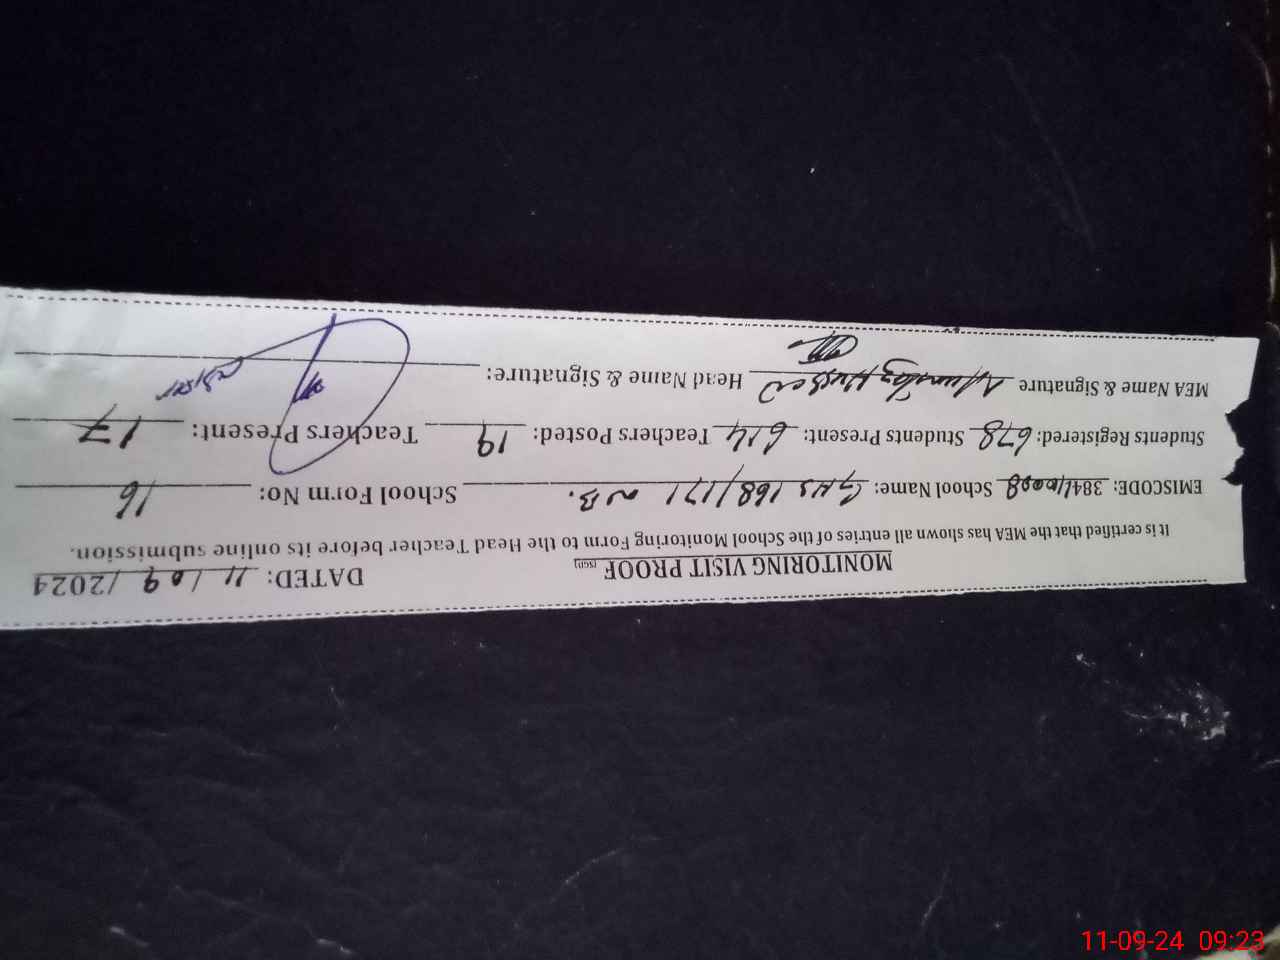 MONITORING VISIT PROOF (SGD) DATED: 11/09/2024
It is certified that the MEA has shown all entries of the School Monitoring Form to the Head Teacher before its online submission.
EMISCODE: 38410008 School Name: GHS 168/171 NB. School Form No: 16
Students Registered: 678 Students Present: 614 Teachers Posted: 19 Teachers Present: 17
MEA Name & Signature Mumtaz Hussain Head Name & Signature:
11-09-24 09:23